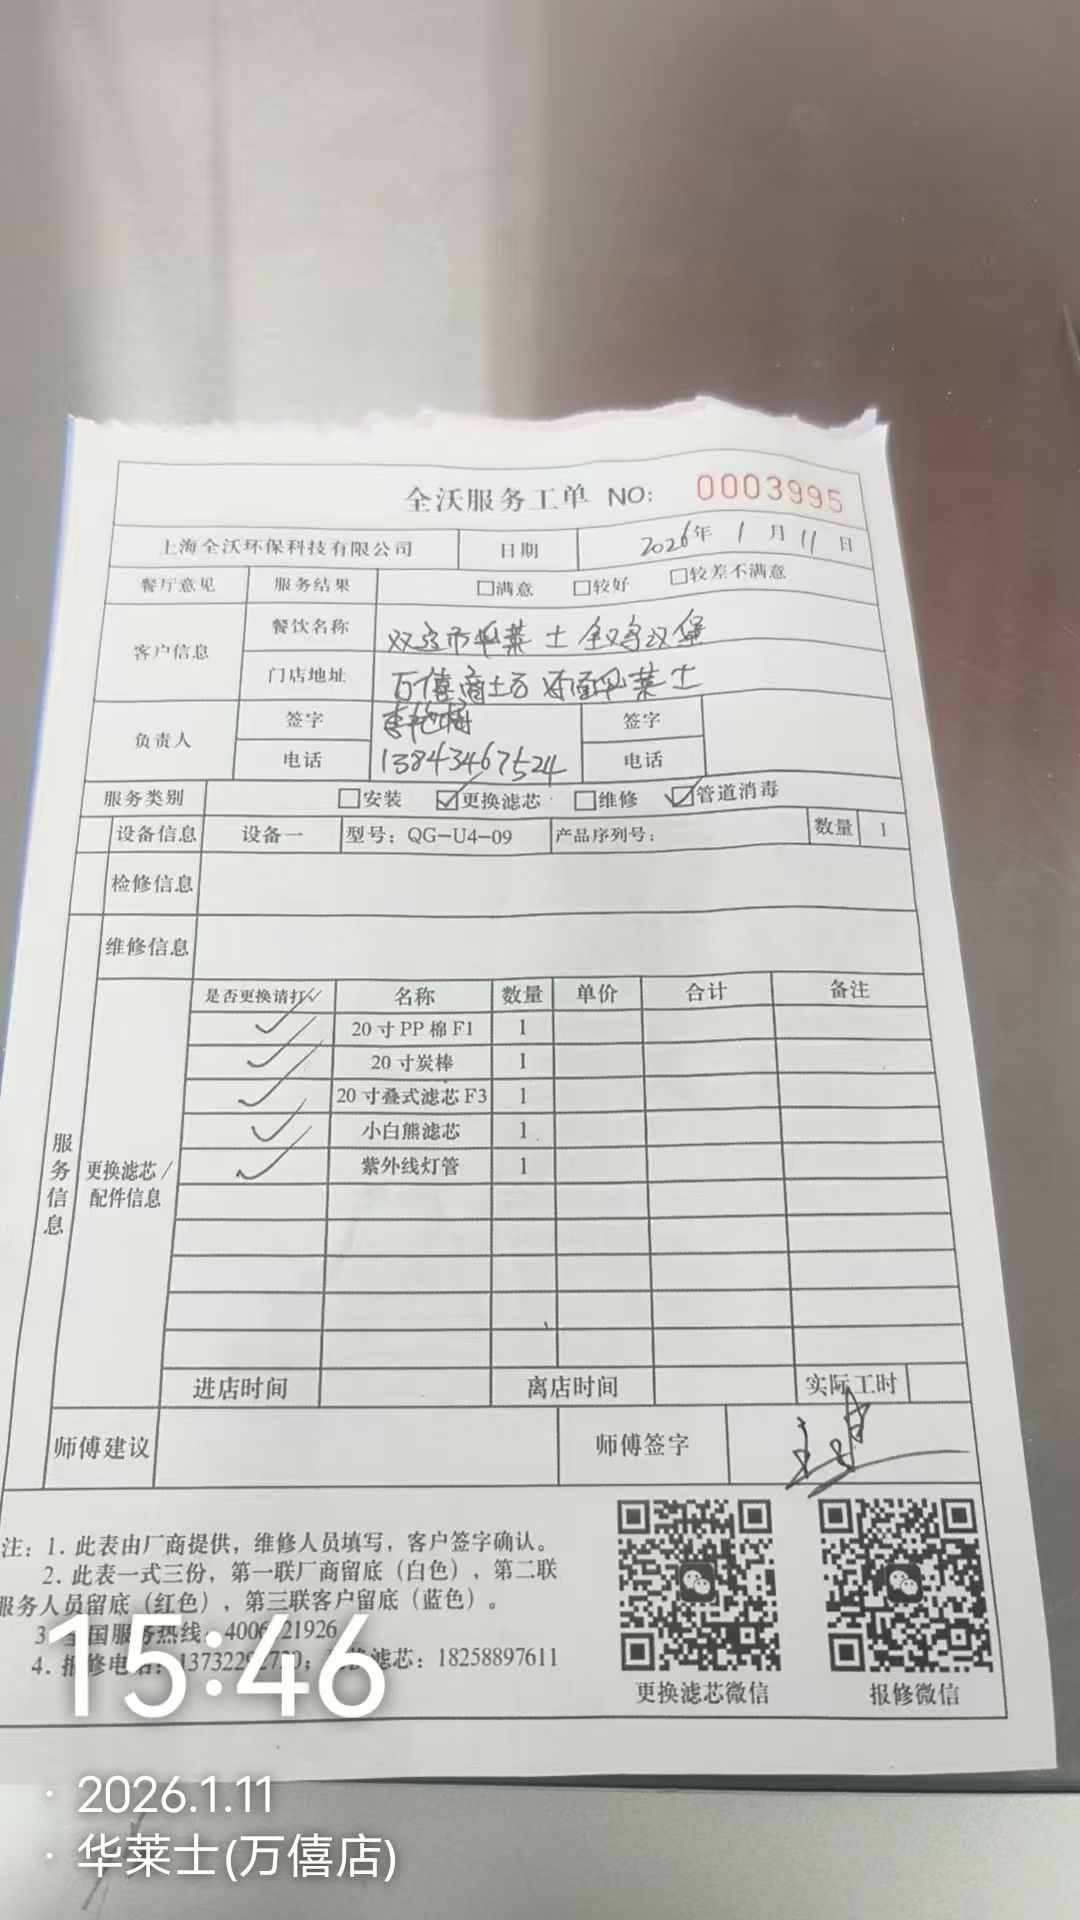 全沃服务工单 NO: 0003995
上海全沃环保科技有限公司 日期 2026年 1 月 11 日
餐厅意见 服务结果 □满意 □较好 □较差不满意
客户信息 餐饮名称 双辽市华莱士全鸡汉堡
门店地址 万僖商士 华莱士
负责人 签字 签字
电话 13843467524 电话
服务类别 □安装 ☑更换滤芯 □维修 ☑管道消毒
设备信息 设备一 型号: QG-U4-09 产品序列号: 数量 1
检修信息
维修信息
服务信息
更换滤芯/
配件信息
是否更换请打✓ 名称 数量 单价 合计 备注
✓ 20寸PP棉F1 1
✓ 20寸炭棒 1
✓ 20寸叠式滤芯F3 1
✓ 小白熊滤芯 1
✓ 紫外线灯管 1
进店时间 离店时间 实际工时
师傅建议 师傅签字
注: 1. 此表由厂商提供，维修人员填写，客户签字确认。
2. 此表一式三份，第一联厂商留底（白色），第二联
服务人员留底（红色），第三联客户留底（蓝色）。
3. 全国服务热线: 4006 21926
4. 报修电话: 137322 ; 更换滤芯: 18258897611
更换滤芯微信 报修微信
15:46
· 2026.1.11
· 华莱士(万僖店)